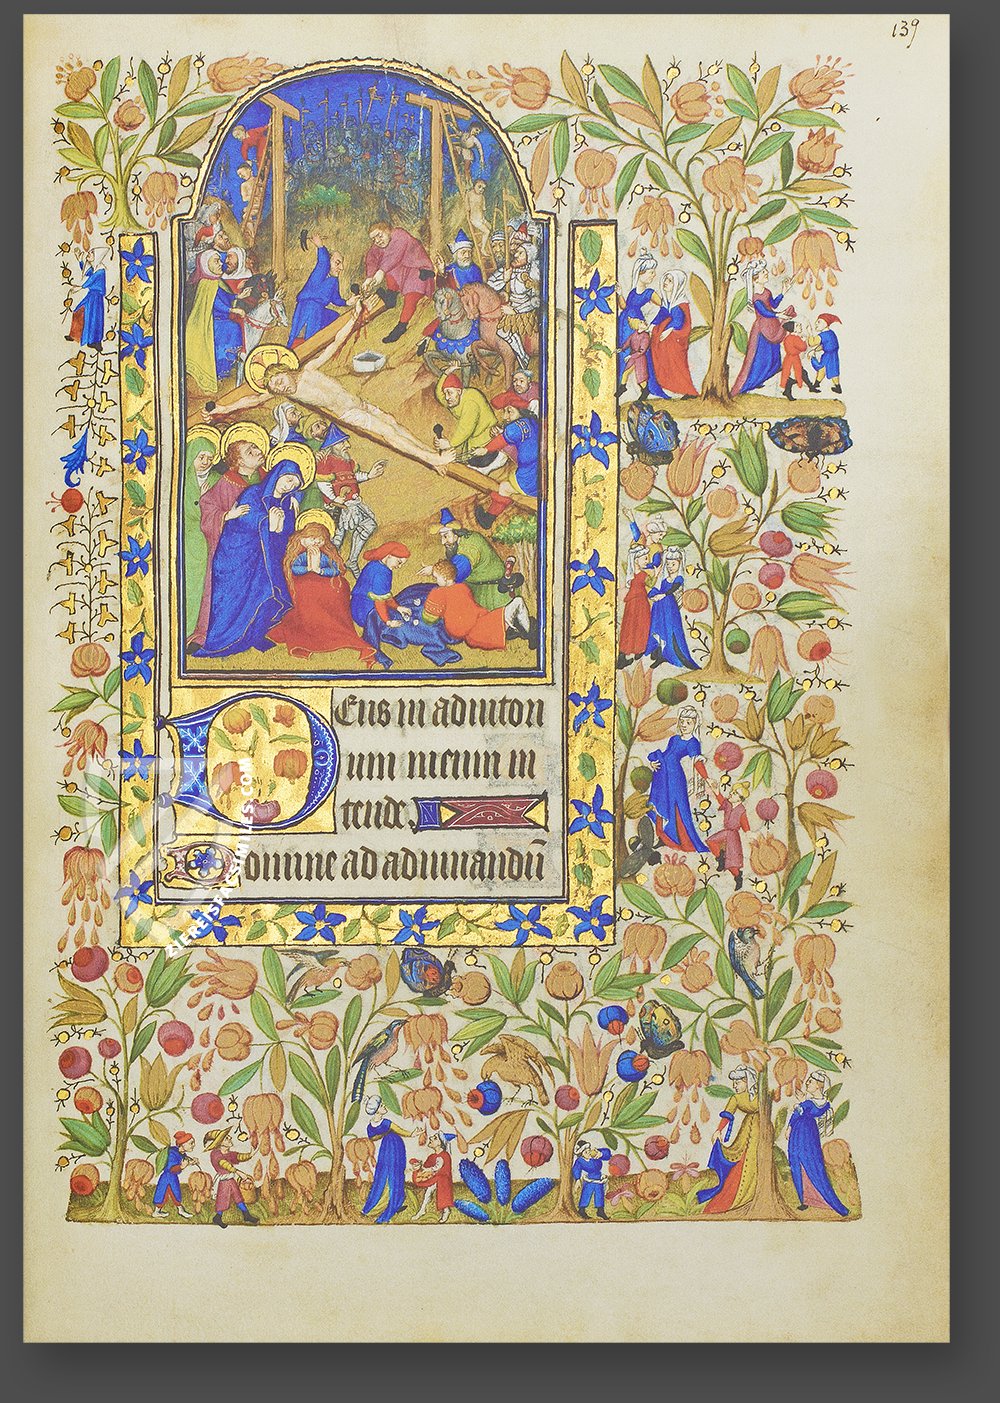 139
Deus in adiutori
um meum in
tende.
Domine ad adiuuandū
ZIEREISFACSIMILES.COM